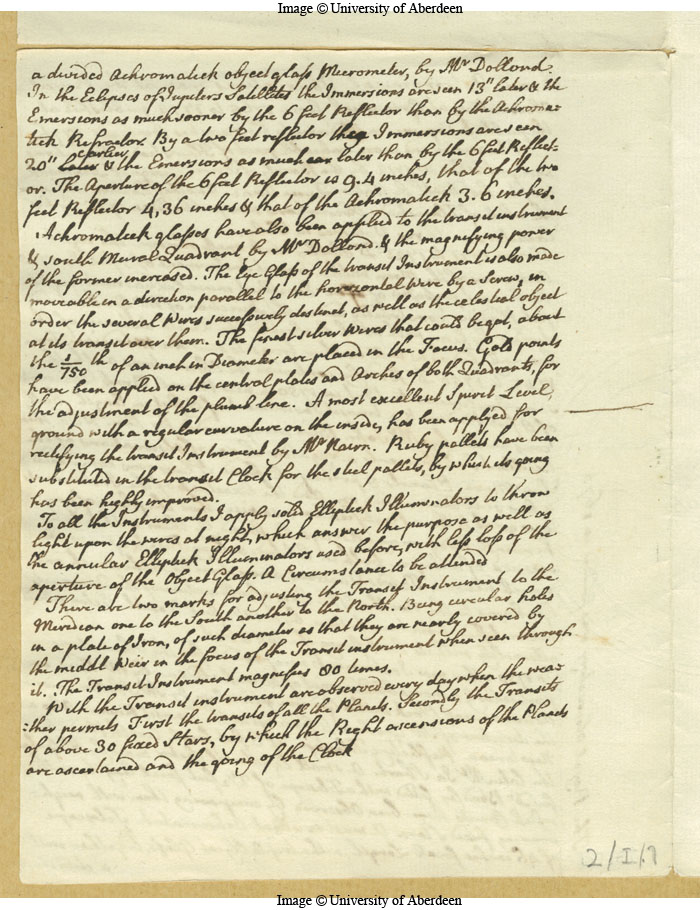 Image © University of Aberdeen
a divided Achromatick object glass Micrometer, by Mr Dollond.
In the Eclipses of Jupiters Satellites the Immersions are seen 13" later & the
Emersions as much sooner by the 6 feet Reflector than by the Achroma-
tick Refractor. By a two feet reflector the Immersions are seen
earlier
20" later & the Emersions as much later than by the 6 feet Reflect-
or. The Aperture of the 6 feet Reflector is 9.4 inches, that of the two
feet Reflector 4,36 inches & that of the Achromatick 3.6 inches.
Achromatick glasses have also been applied to the transit instrument
& south Mural Quadrant by Mr Dollond. & the magnifying power
of the former increased. The Eye Glass of the transit Instrument is also made
moveable in a direction parallel to the horizontal Wire by a Screw, in
order the several Wires successively distinct, as well as the celestial object
at its transit over them. The finest silver Wires that could be got, about
the 1/750 th of an inch in Diameter are placed in the Focus. Gold points
have been applied on the central plates and Arches of both Quadrants, for
the adjustment of the plumb line. A most excellent Spirit Level,
ground with a regular curvature on the inside, has been applyed for
rectifying the transit Instrument by Mr Nairn. Ruby pallets have been
substituted in the transit Clock for the steel pallets, by which its going
has been highly improved.
To all the Instruments I apply solid Elliptick Illuminators to throw
light upon the wires at night, which answer the purpose as well as
the annular Elliptick Illuminators used before, with less loss of the
aperture of the Object Glass. A Circumstance to be attended
There are two marks for adjusting the Transit Instrument to the
Meridian one to the South another to the North. Being circular holes
in a plate of Iron, of such diameter as that they are nearly covered by
the middl Weir in the focus of the Transit instrument when seen through
it. The Transit Instrument magnifies 80 times.
With the Transit instrument are observed every day when the wea-
:ther permits First the transits of all the Planets. Secondly the Transits
of above 30 fixed Stars, by which the Right ascensions of the Planets
are ascertained and the going of the Clock
2/I/.7
Image © University of Aberdeen